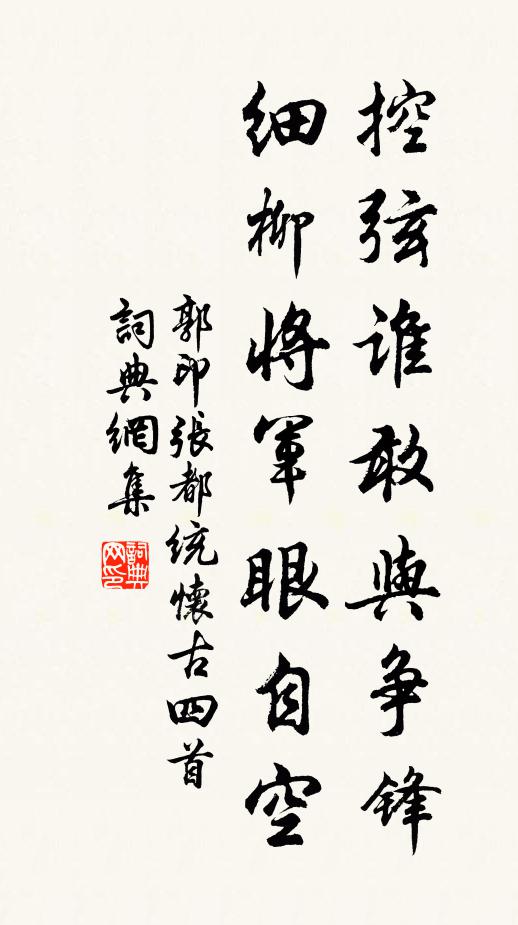 控弦谁敢與争锋
细柳將軍眼自空
郭印張都统懷古四首
詞典網集
詞典网印